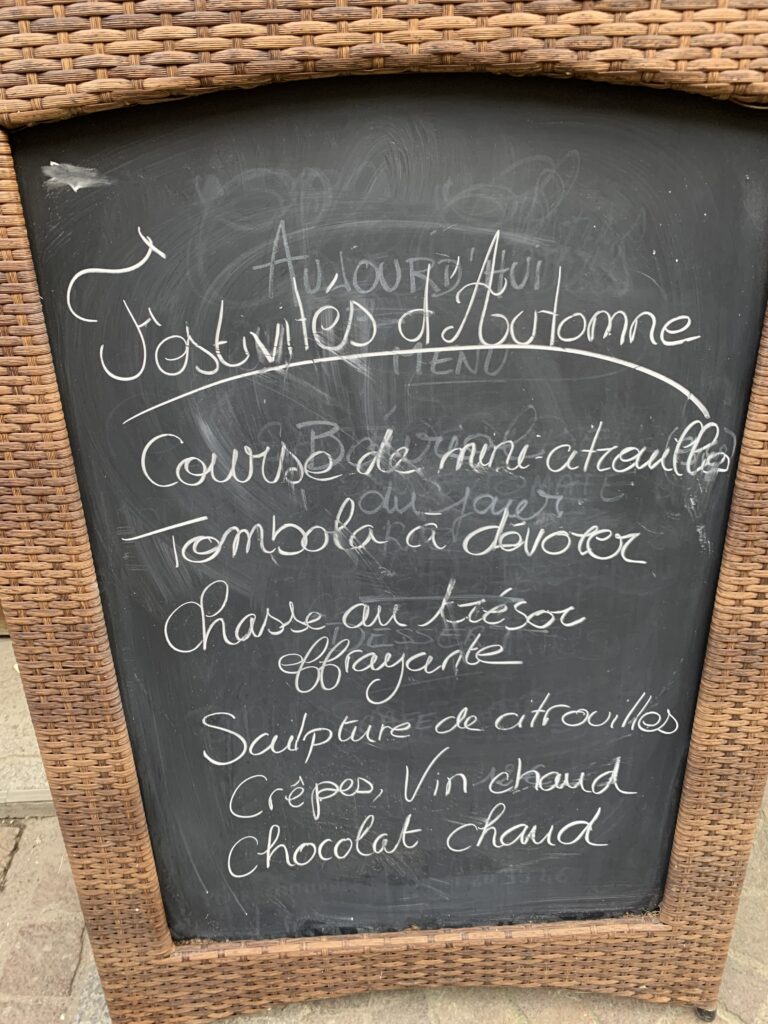 AUJOURD'HUI
Festivités d'Automne
MENU
Course de mini-citrouilles
du jour
Tombola à dévorer
Chasse au trésor
effrayante
Sculpture de citrouilles
Crêpes, Vin chaud
Chocolat chaud